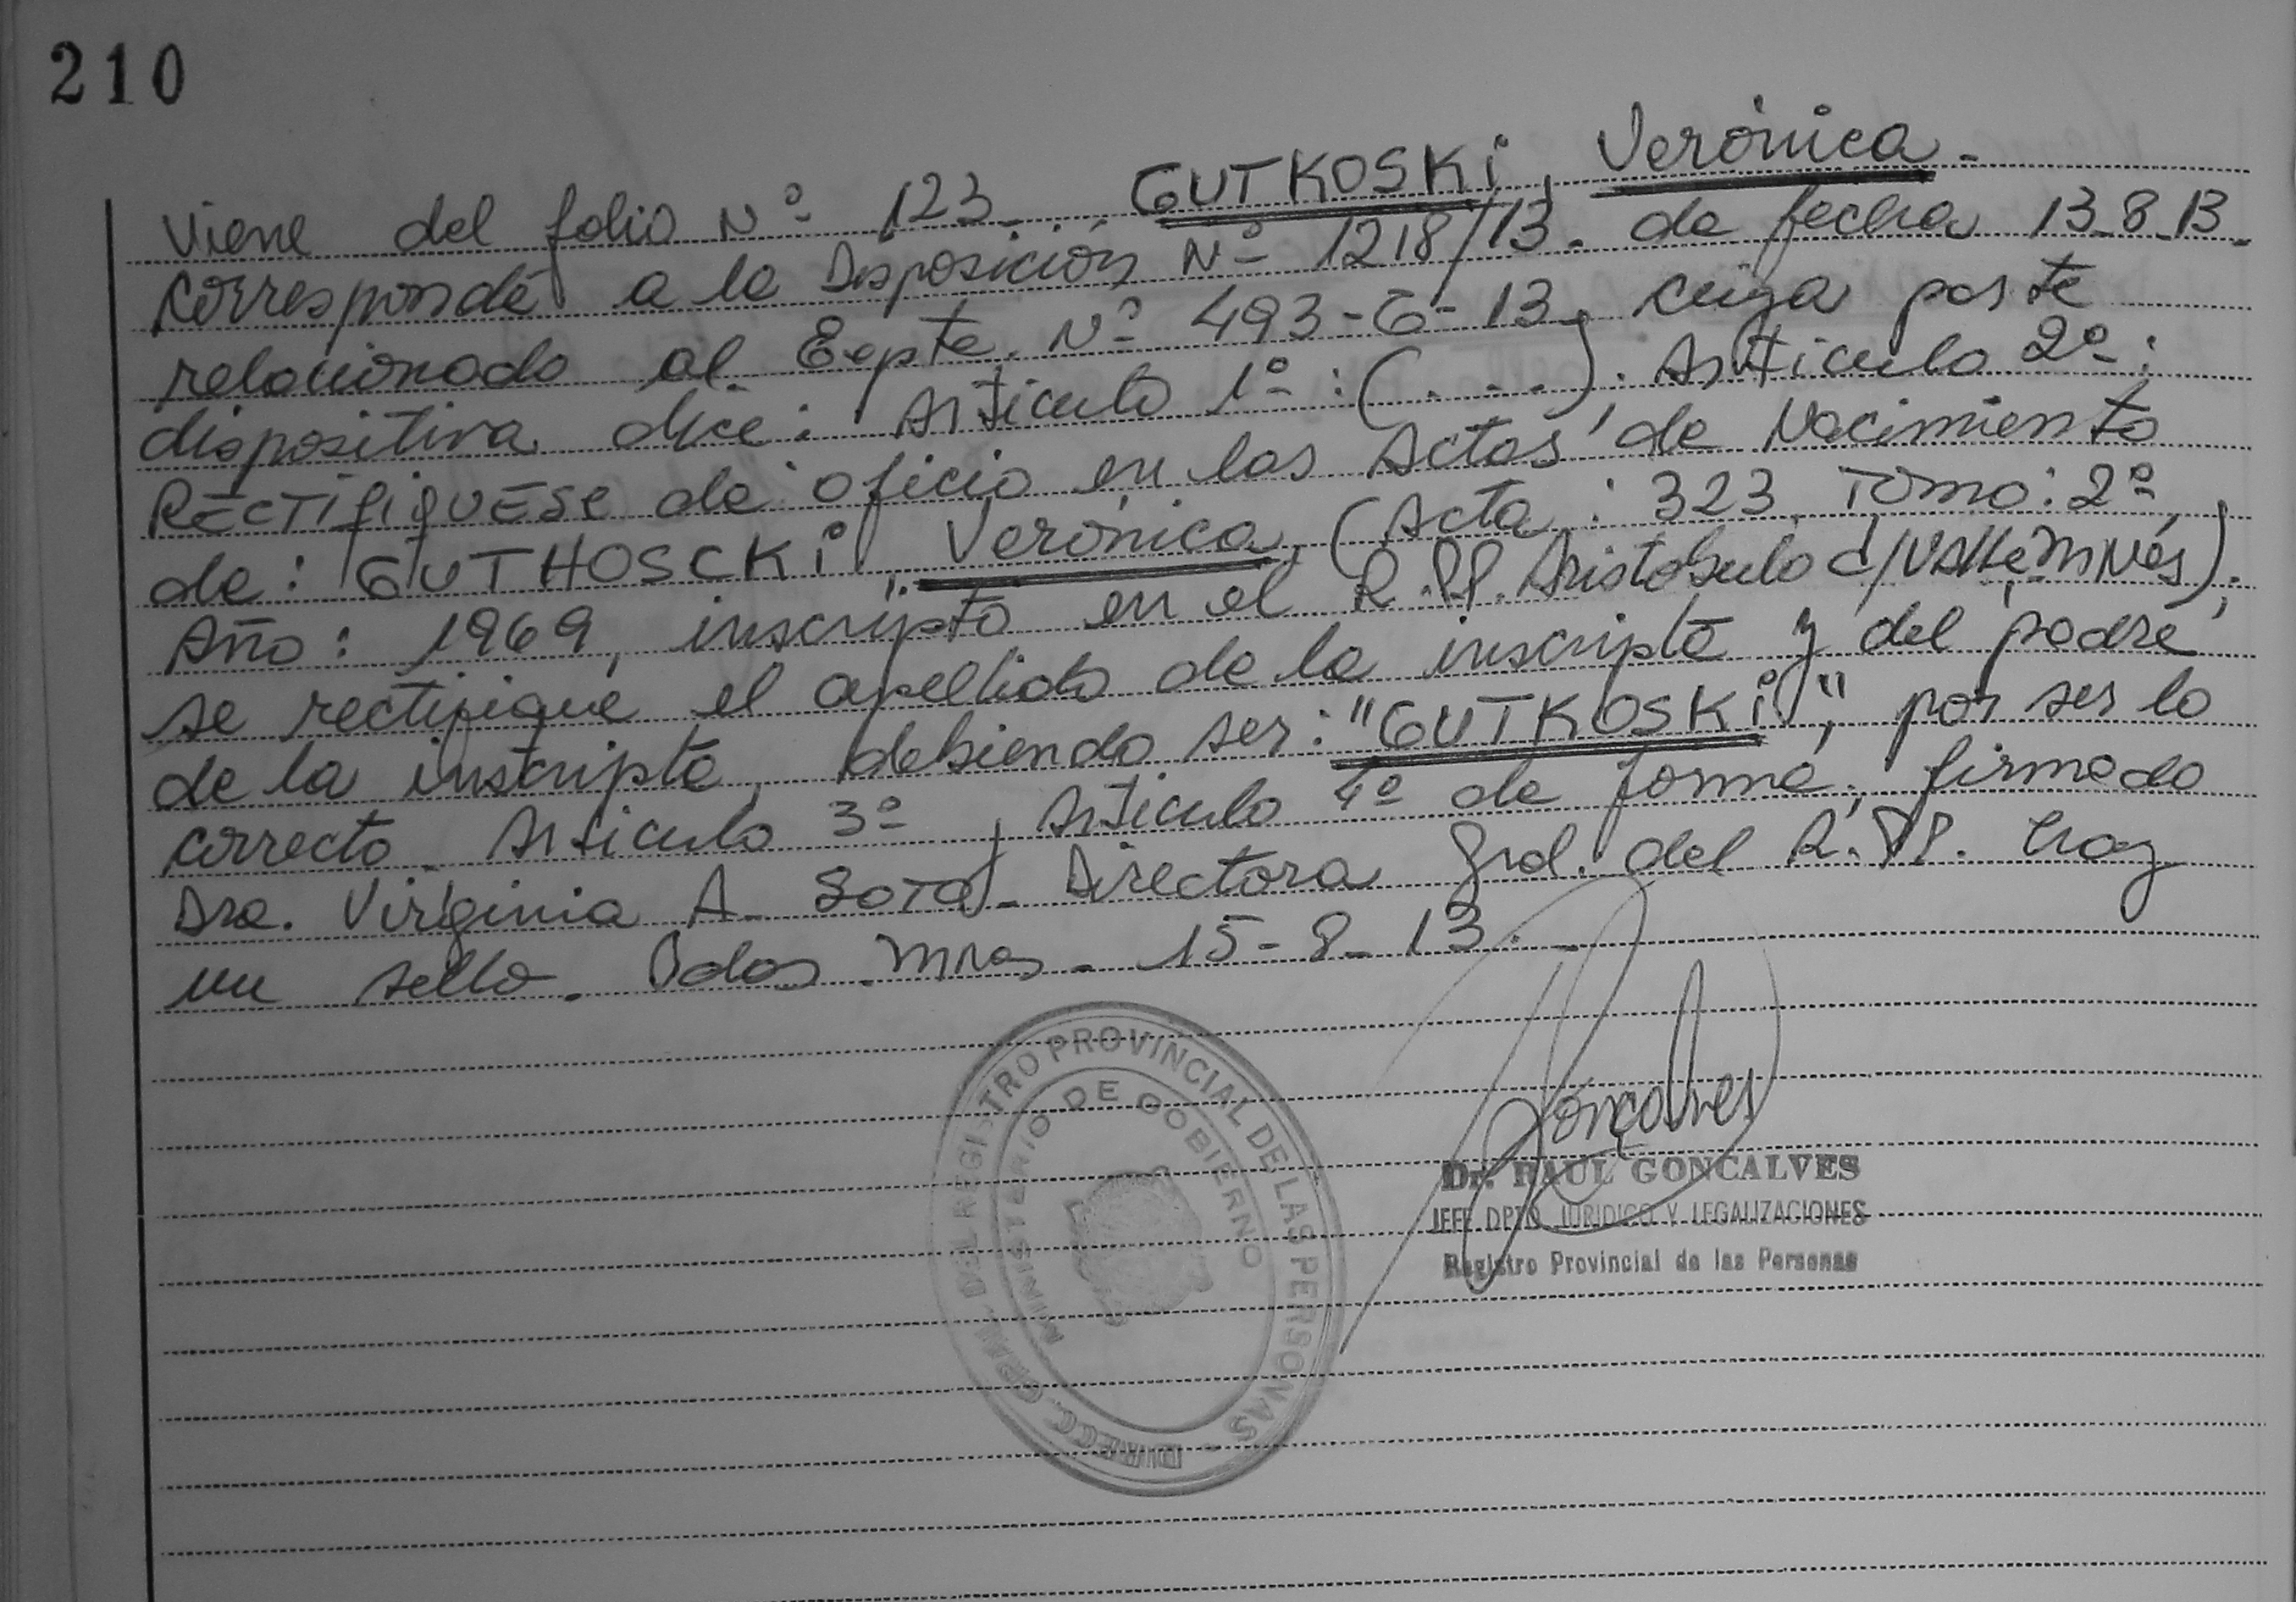 210
Viene del folio Nº 123. GUTKOSKi, Verónica.-
corresponde a la Disposición Nº 1218/13. de fecha 13-8-13-
relacionado al Expte. Nº 493-G-13, cuya parte
dispositiva dice: Artículo 1º: (....). Artículo 2º:
RECTIFIQUESE de oficio en las Actas de Nacimiento
de: GUTHOSCKi, Verónica, (Acta: 323, Tomo: 2º,
Año: 1969, inscripta en el R.PP. Aristobulo d/Valle Mnes).
se rectifique el apellido de la inscripta y del padre
de la inscripta, debiendo ser: "GUTKOSKi", por ser lo
correcto. Artículo 3º, Artículo 4º de forma, firmado
Dra. Virginia A. Soto- Directora Gral. del R.PP. Hay
un sello. Pdas. Mnes- 15-8-13.-
DIRECC. GRAL. DEL REGISTRO PROVINCIAL DE LAS PERSONAS -
MINISTERIO DE GOBIERNO
Goncalves
Dr. RAUL GONCALVES
JEFE DPTO. JURIDICO Y LEGALIZACIONES
Registro Provincial de las Personas